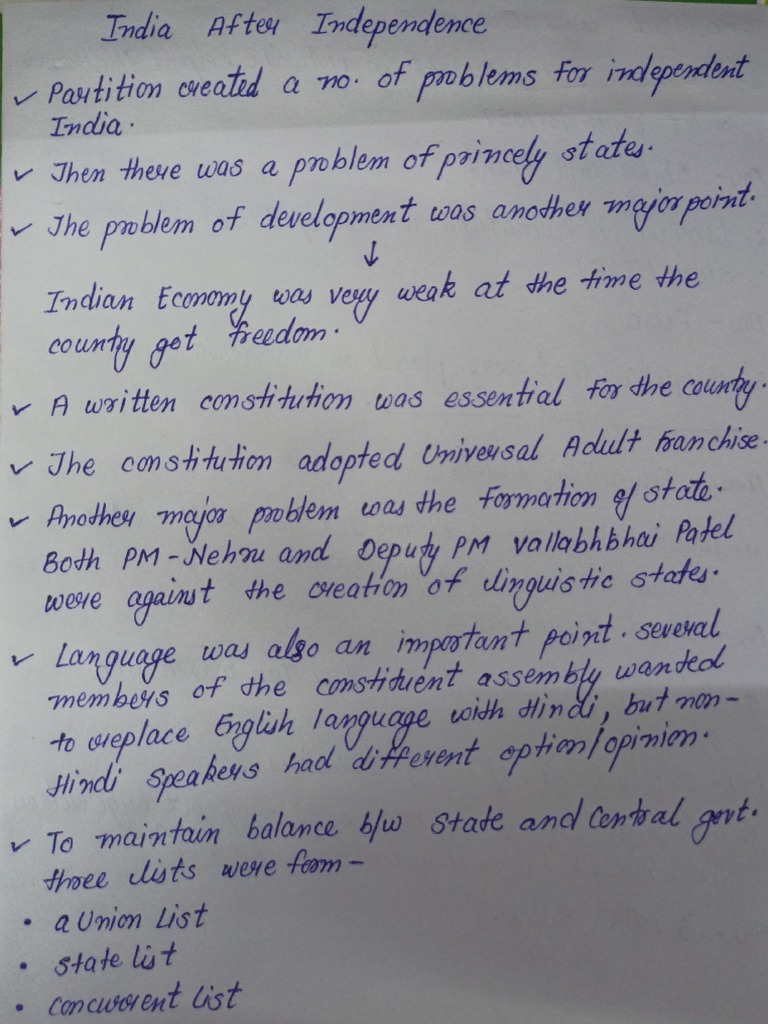 India After Independence
✓ Partition created a no. of problems for independent
India.
✓ Then there was a problem of princely states.
✓ The problem of development was another major point.
↓
Indian Economy was very weak at the time the
county got freedom.
✓ A written constitution was essential for the county.
✓ The constitution adopted Universal Adult Franchise.
✓ Another major problem was the formation of state.
Both PM-Nehru and Deputy PM Vallabhbhai Patel
were against the creation of linguistic states.
✓ Language was also an important point. several
members of the constituent assembly wanted
to replace English language with Hindi, but non-
Hindi speakers had different option/opinion.
✓ To maintain balance b/w State and Central govt.
three lists were form-
• a Union List
• State list
• Concurrent List